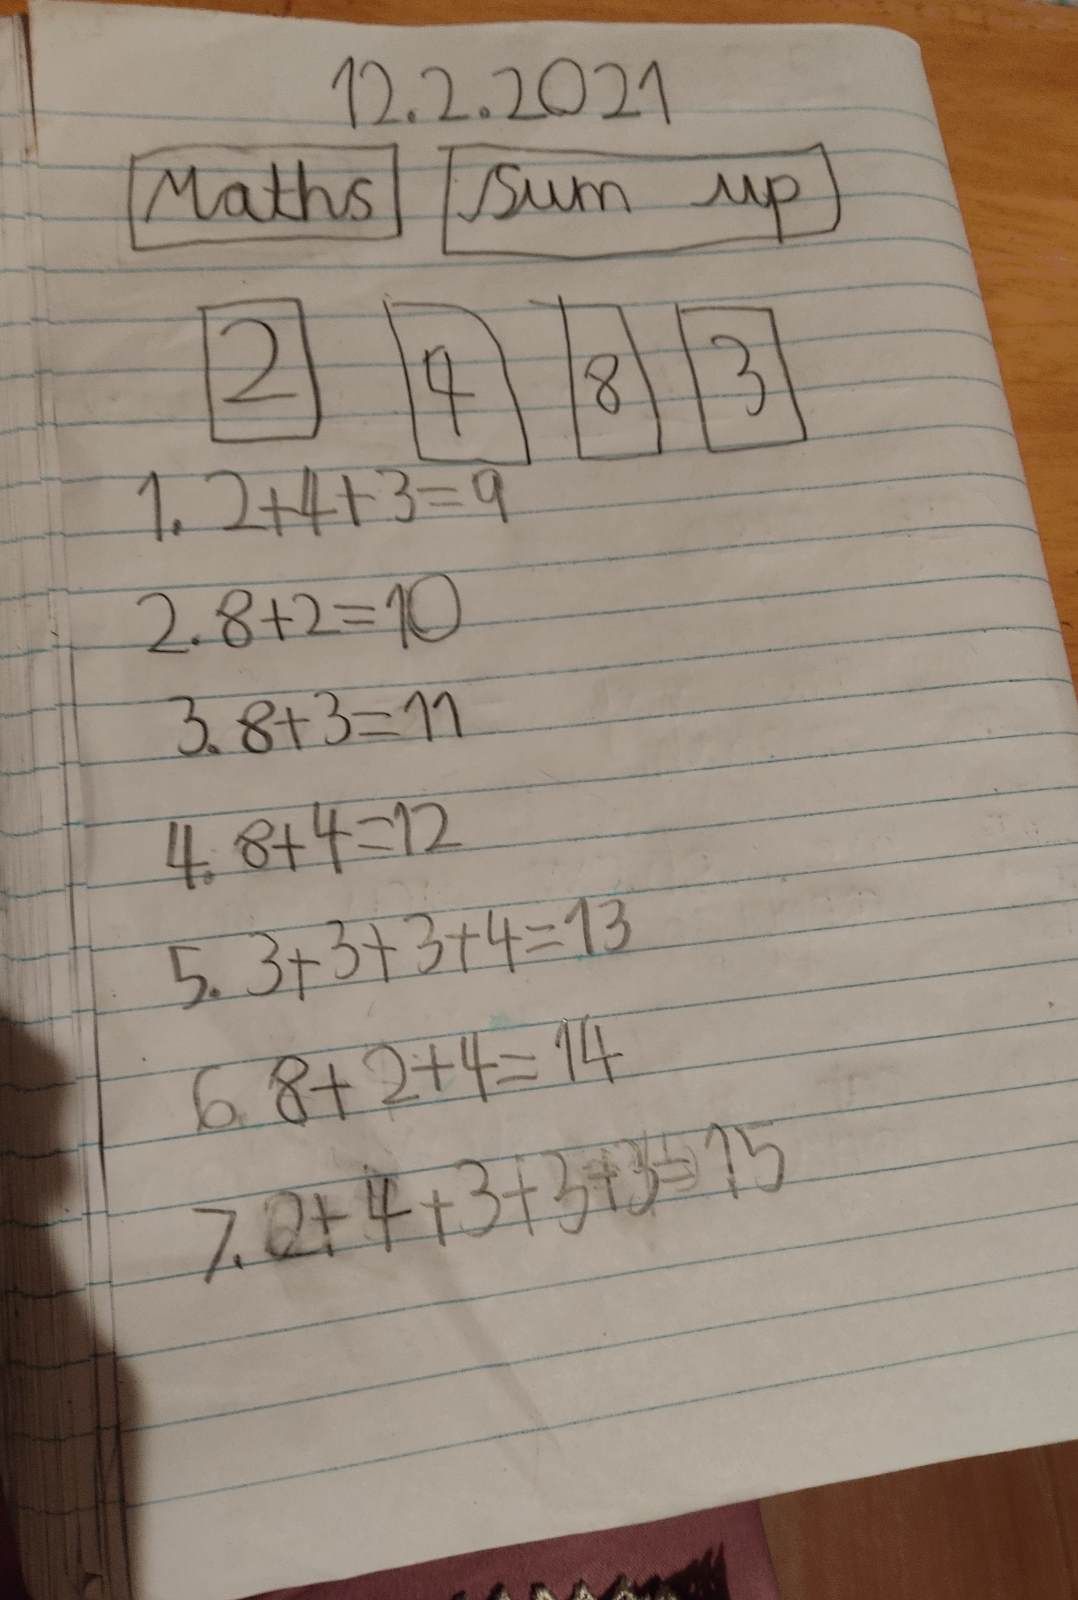 12.2.2021
Maths Sum up
2 4 8 3
1. 2+4+3=9
2. 8+2=10
3. 8+3=11
4. 8+4=12
5. 3+3+3+4=13
6. 8+2+4=14
7. 2+4+3+3+3=15